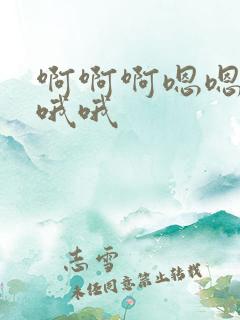 啊啊啊嗯嗯
哦哦
志雪
未经同意禁止转载